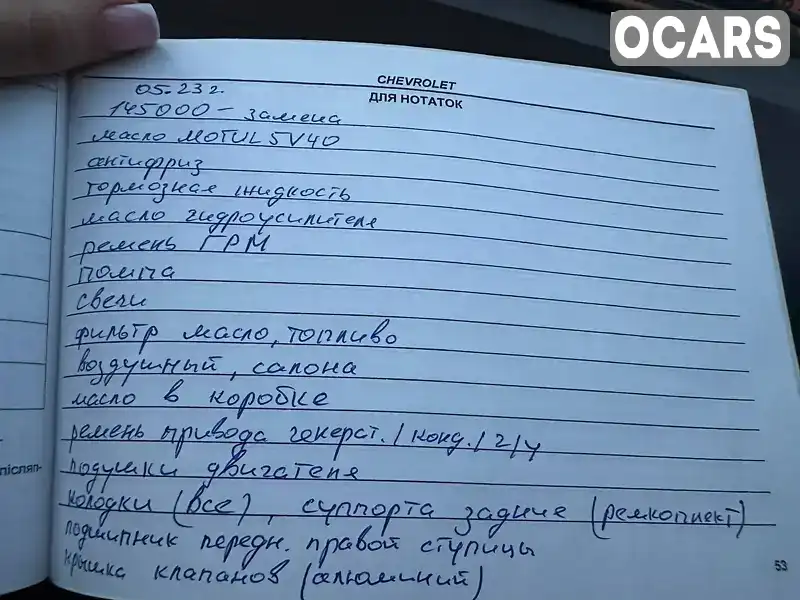 OCARS
CHEVROLET
ДЛЯ НОТАТОК
05.23г.
145000 - замена
масло MOTUL 5V40
антифриз
тормозная жидкость
масло гидроусилителя
ремень ГРМ
помпа
свечи
фильтр масло, топливо
воздушный, салона
масло в коробке
ремень привода генерат./конд./г/у
подушки двигателя
колодки (все), суппорта задние (ремкоплект)
подшипник передн. правой ступицы
крышка клапанов (алюминий)
післяп-
53